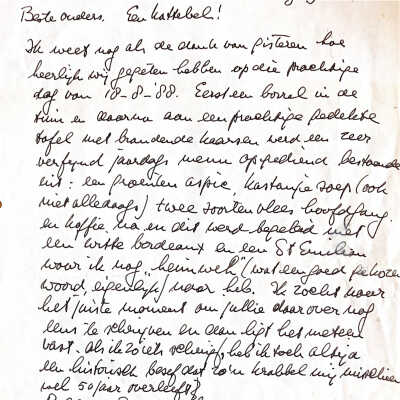 Beste ouders. Een kattebel!
Ik weet nog als de dank van gisteren hoe
heerlijk wij gegeten hebben op die prachtige
dag van 18-8-'88. Eerst een borrel in de
tuin en daarna aan een prachtige gedekte
tafel met brandende kaarsen werd een zeer
verfynd jaardags menu opgediend bestaande
uit: een groenten aspic, kastanje soep (ook
niet alledaags) twee soorten vlees hoofdgang
en koffie na en dit werd begeleid met
een witte bordeaux en een St Emilion
waar ik nog "heimweh" (wat een goed gekozen
woord, eigenlijk) naar heb. Ik zocht naar
het juiste moment om jullie daarover nog
eens te schrijven en dan ligt het meteen
vast. Als ik zoiets schrijf, heb ik toch altijd
een historisch besef dat zo'n krabbel mij misschien
wel 50 jaar overleeft?